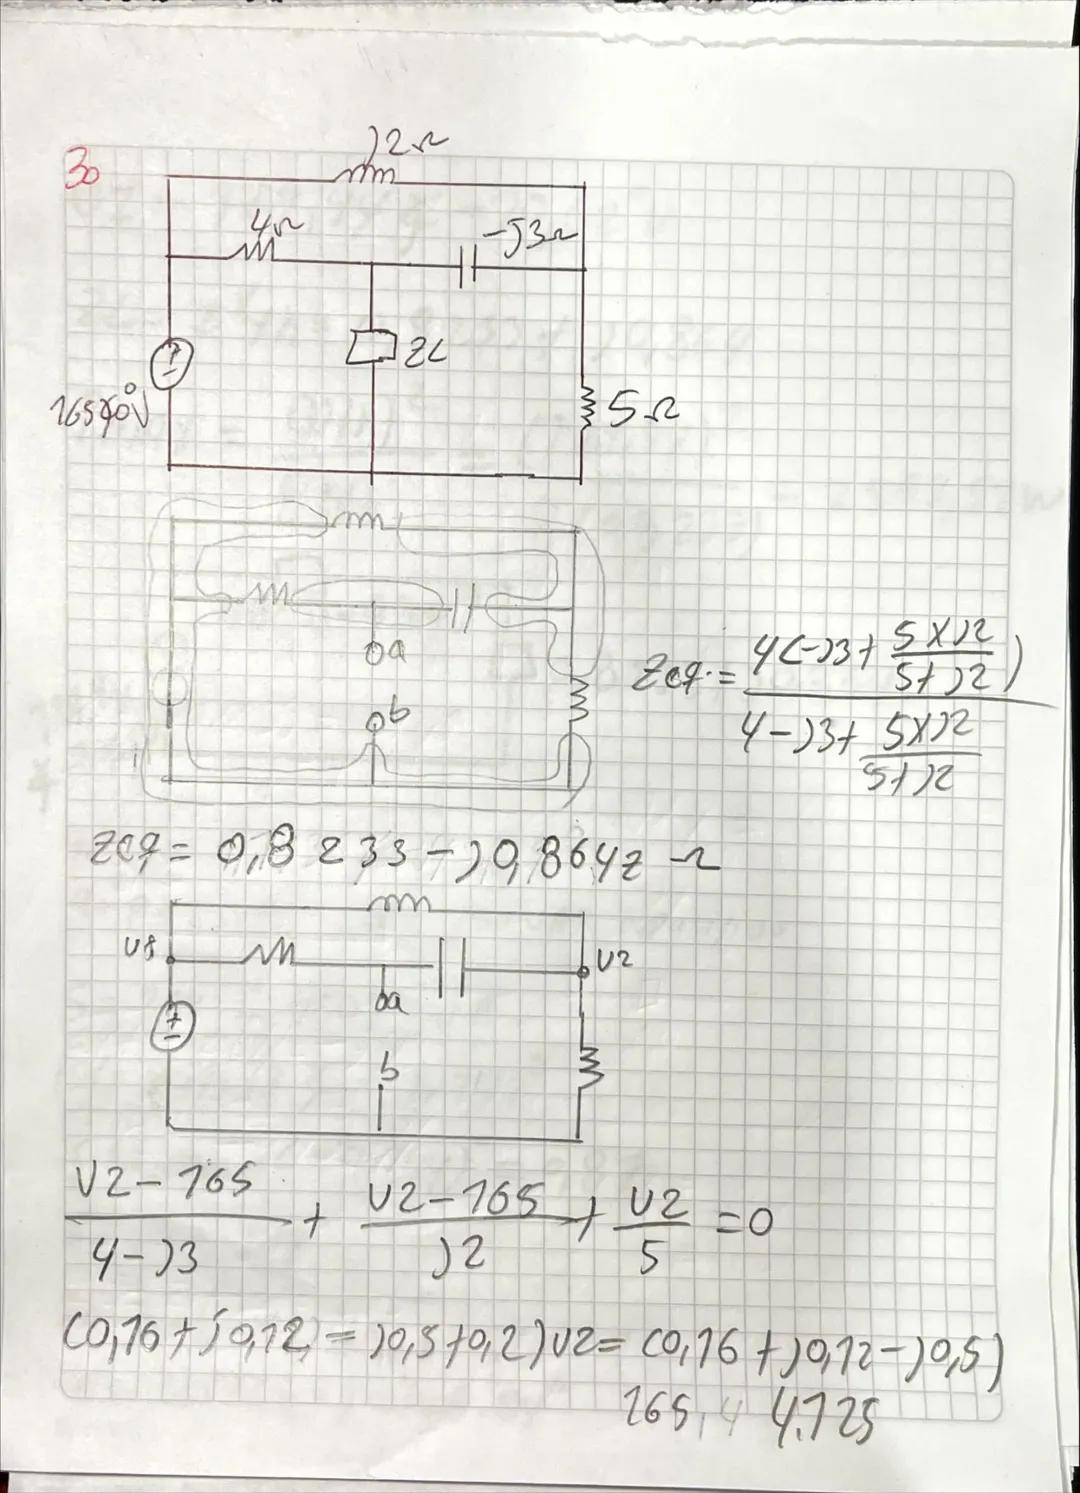 30
j2Ω
4Ω
-j3Ω
ZL
165∠0°V
5Ω
a
b
Zeq. = 4(-j3+ 5×j2 / 5+j2) / 4-j3+ 5×j2 / 5+j2
Zeq = 0,8233 - j0,8642 Ω
V8
V2
a
b
V2-165 / 4-j3 + V2-165 / j2 + V2 / 5 = 0
(0,16+j0,12,=j0,5+0,2)V2=(0,16+j0,12-j0,5)
165,4 4.125